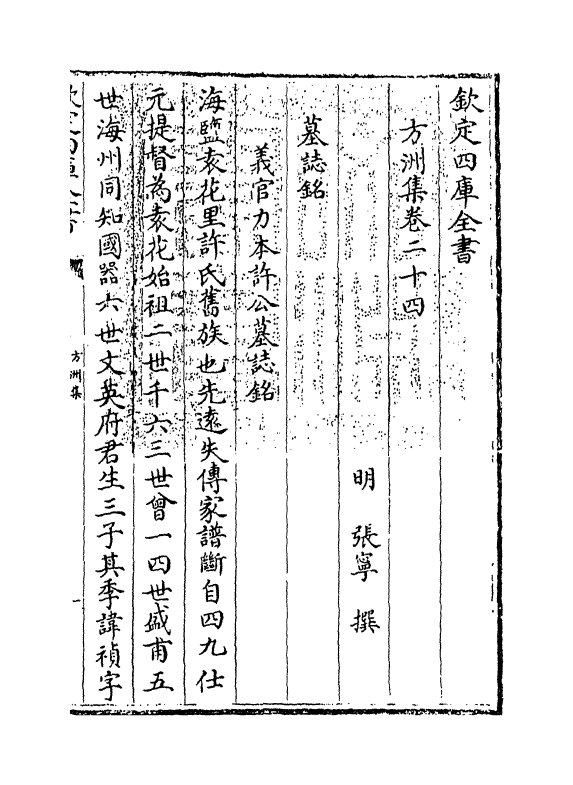 欽定四庫全書
方洲集卷二十四
明　張寧　撰
墓誌銘
義官力本許公墓誌銘
海鹽袁花里許氏舊族也先遠失傳家譜斷自四九仕
元提督為袁花始祖二世千六三世曾一四世盛甫五
世海州同知國器六世文英府君生三子其季諱禎字
方洲集